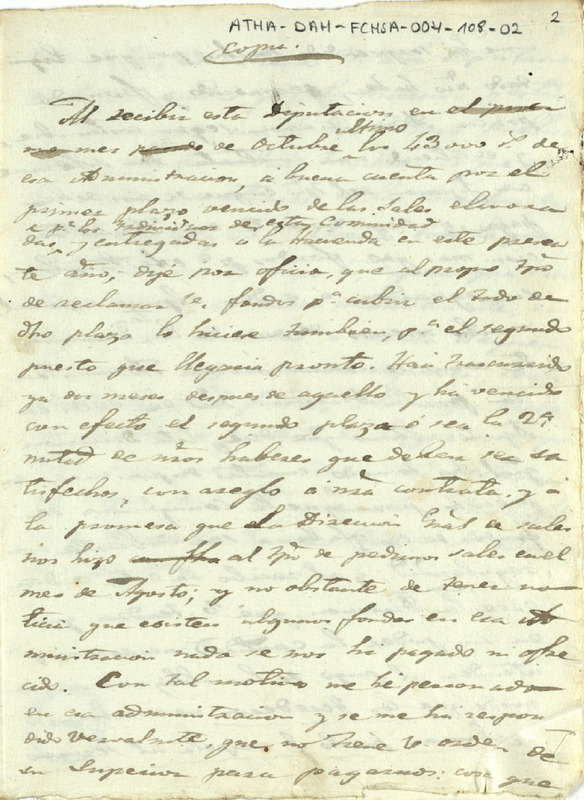 ATHA-DAH-FCHSA-004-108-02
2
Copia.
Al recibir esta Diputacion en el presen
me mes pasado de Octubre ultimo los 43000 rs de
esa Administracion, a buena cuenta por el
primer plazo vencido de las sales elavora
a pr los Individuos de esta Comunidad
das y entregadas a la Hacienda en este presen
te año, dije por oficio, que al propio tpo
de reclamar V. fondos pa cubrir el todo de
dho plazo lo hiciese tambien, pa el segundo
puesto que llegaria pronto. Han trascurrido
ya dos meses despues de aquello y ha vencido
con efecto el segundo plazo ó sea la 2a
mitad de nros haberes que deben ser sa
tisfechos, con areglo a nra contrata, y a
la promesa que la Direccion Gral de sales
nos hizo al tpo de pedirnos sales en el
mes de Agosto; y no obstante de tener no
ticia que existen algunos fondos en esa Ad
ministracion nada se nos ha pagado ni ofre
cido. Con tal motivo me he personado
en esa administracion y se me ha respon
dido vervalmte, que no tiene V. orden de
su Superior para pagarnos: cosa que